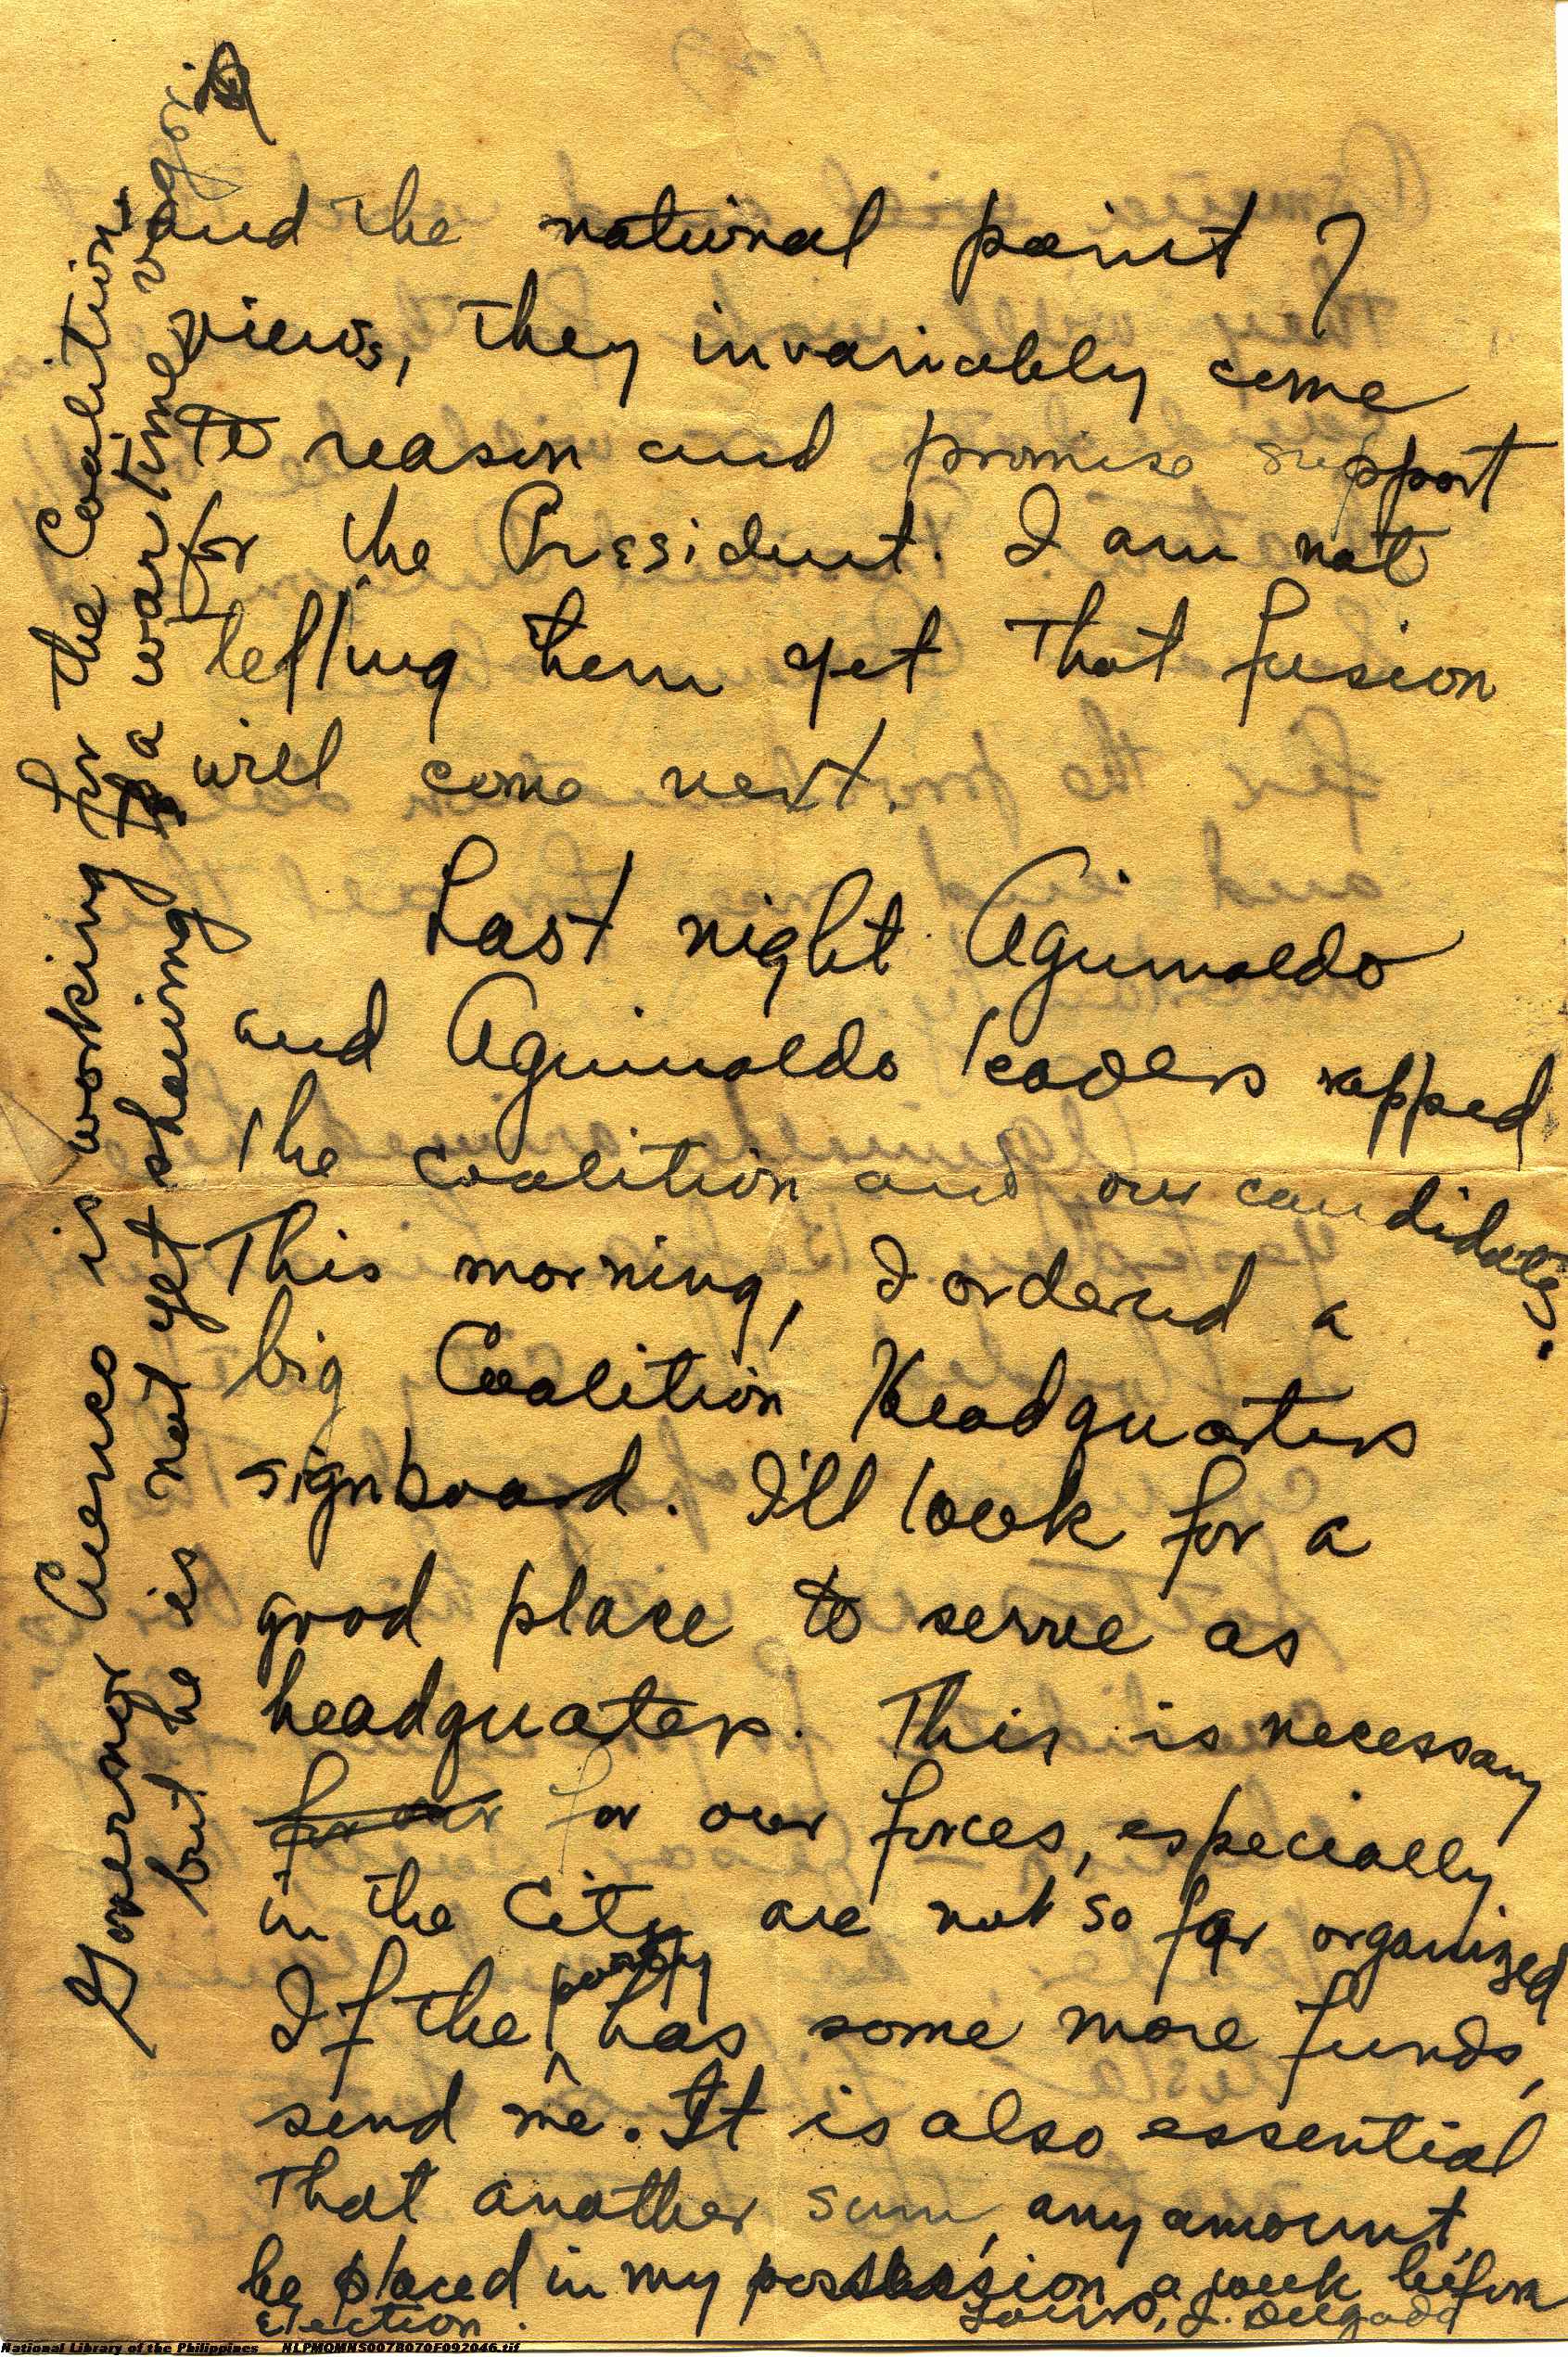 and the national point of
views, they invariably come
to reason and promise support
for the President. I am not
telling them yet that fusion
will come next.
Last night Aguinaldo
and Aguinaldo leaders rapped
the coalition and our candidates.
This morning, I ordered a
big Coalition Headquaters
signboard. I'll look for a
good place to serve as
headquaters. This is necessary
for our for our forces, especially
in the City are not so far organized
If the party has some more funds,
send me. It is also essential
that another sum, any amount,
be placed in my possession a week before
election.
Yours, J. Delgado
Governor Cuenco is working for the Coalition
but he is not yet shewing a war time vigor
National Library of the Philippines NLPMOMNS007B070F092046.tif